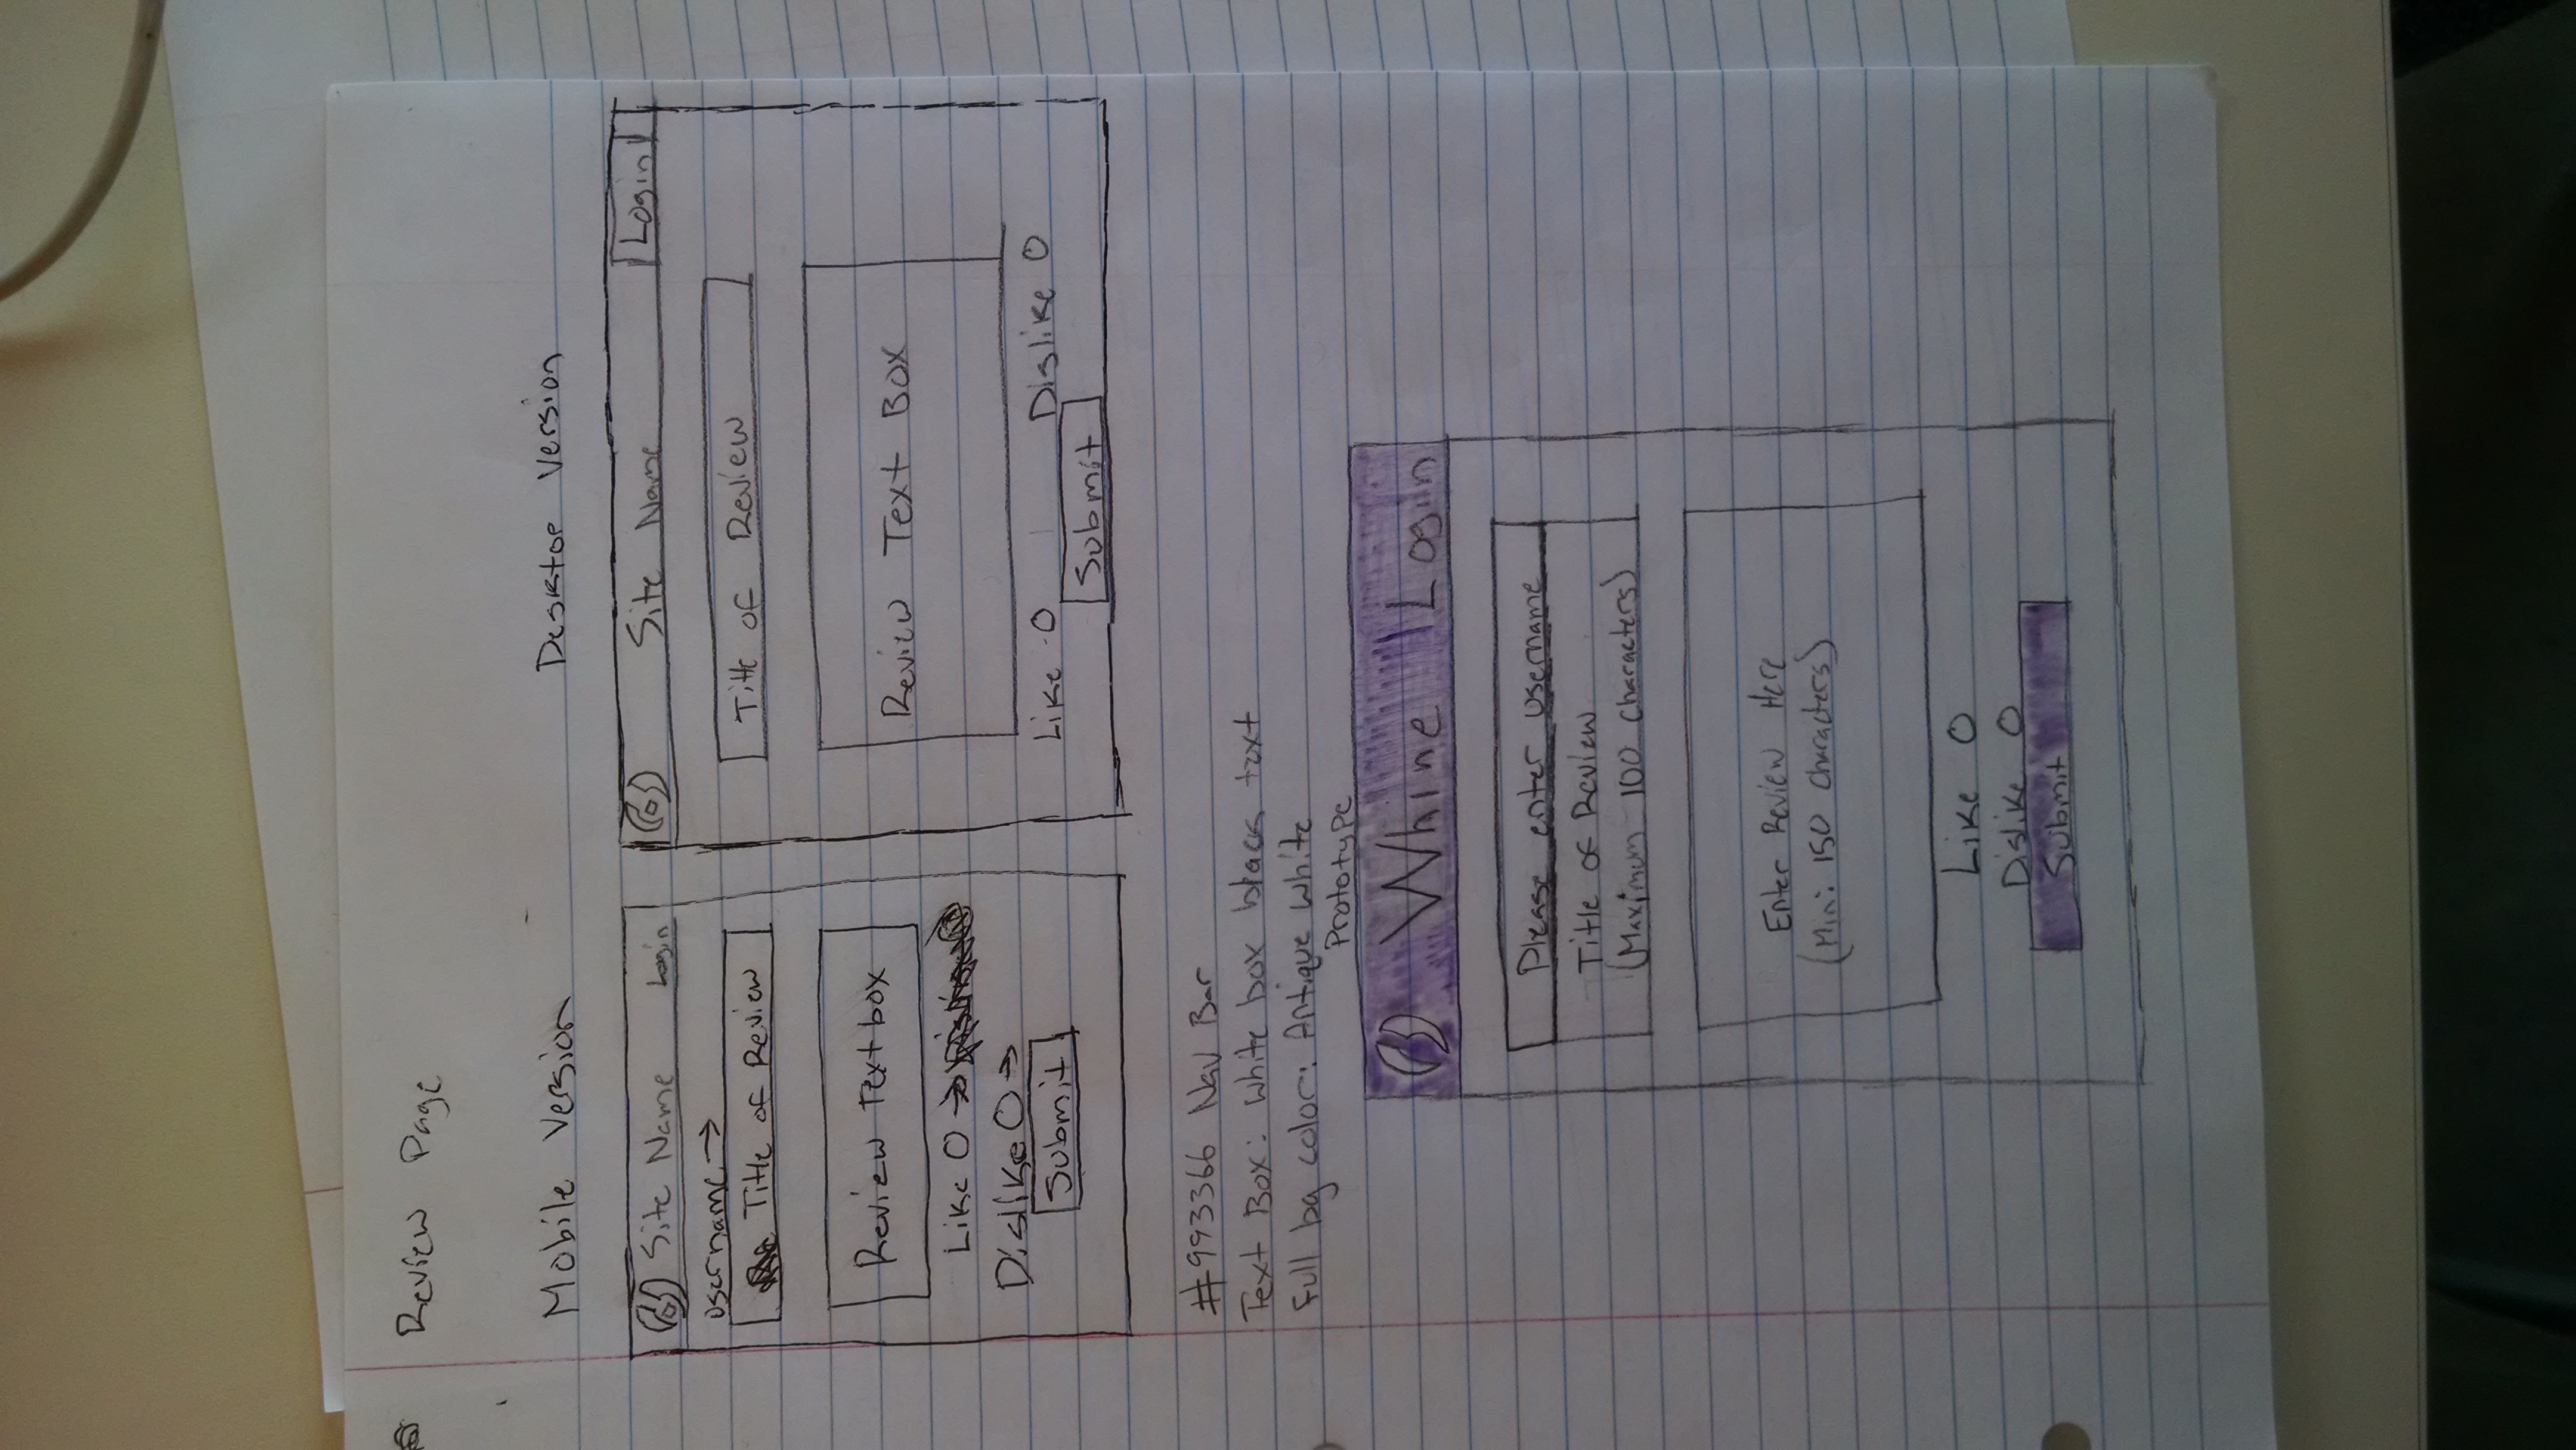 Review Page
Mobile Version
Site Name Login
username →
Title of Review
Review Textbox
Like O →
Dislike O →
Submit
Desktop Version
Site Name Login
Title of Review
Review Text Box
Like O Dislike O
Submit
#993366 Nav Bar
Text Box: white box black text
Full bg color: Antique white
Prototype
Whine | Login
Please enter username
Title of Review
(Maximum - 100 characters)
Enter Review Here
(Min: 150 characters)
Like O
Dislike O
Submit